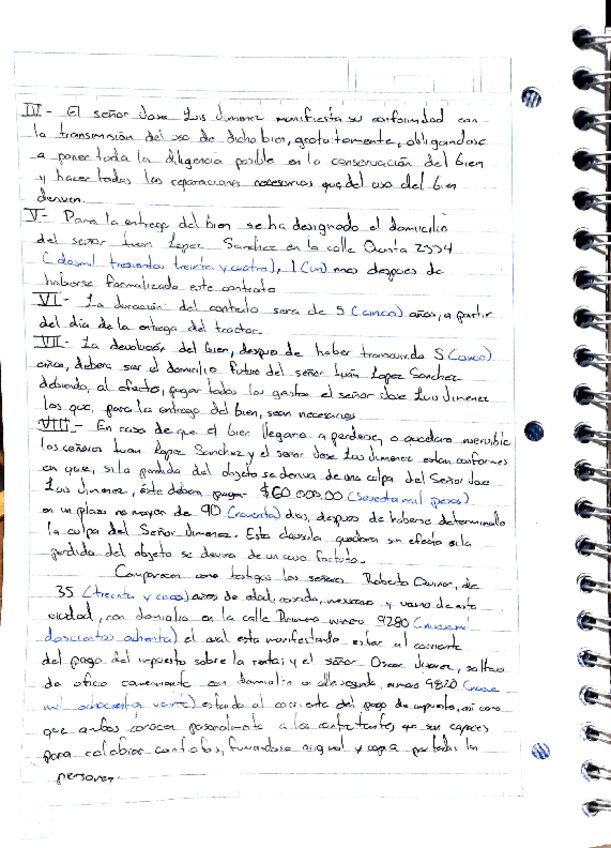 III - El señor Jose Luis Jimenez manifiesta su conformidad con
la transmisión del uso de dicho bien, gratuitamente, obligandose
a poner toda la diligencia posible en la conservación del bien
y hacer todas las reparaciones necesarias que del uso del bien
deriven.
V - Para la entrega del bien se ha designado el domicilio
del señor Juan Lopez Sanchez en la calle Quinta 2334
(dosmil trescientos treinta y cuatro), 1 (un) mes despues de
haberse formalizado este contrato
VI - La duración del contrato sera de 5 (cinco) años, a partir
del día de la entrega del tractor.
VII - La devolución del bien, despues de haber transcurrido 5 (cinco)
años, debera ser el domicilio futuro del señor Juan Lopez Sanchez
debiendo, al efecto, pagar todos los gastos el señor Jose Luis Jimenez
los que, para la entrega del bien, sean necesarios.
VIII - En caso de que el bien llegara a perderse, o quedara inservible
los señores Juan Lopez Sanchez y el señor Jose Luis Jimenez estan conformes
en que, si la perdida del objeto se deriva de una culpa del Señor Jose
Luis Jimenez, éste debera pagar $60 000.00 (sesenta mil pesos)
en un plazo no mayor de 90 (noventa) dias, despues de haberse determinado
la culpa del Señor Jimenez. Esta clausula quedara sin efecto si la
perdida del objeto se deriva de un caso fortuito.
Comparecen como testigos los señores Roberto de
35 (treinta y cinco) años de edad, casado, mexicano y vecino de esta
ciudad, con domicilio en la calle Primera numero 9280
doscientos ochenta) el cual esta manifestando estar al corriente
del pago del impuesto sobre la renta; y el señor Oscar soltero
de oficio con domicilio en calle segunda, numero 9820 (nueve
mil ochocientos veinte) estando al corriente del pago de impuesto, asi como
que ambos conocen personalmente a los contratantes, que son capaces
para celebrar contratos, firmandose original y copia por todas las
personas.